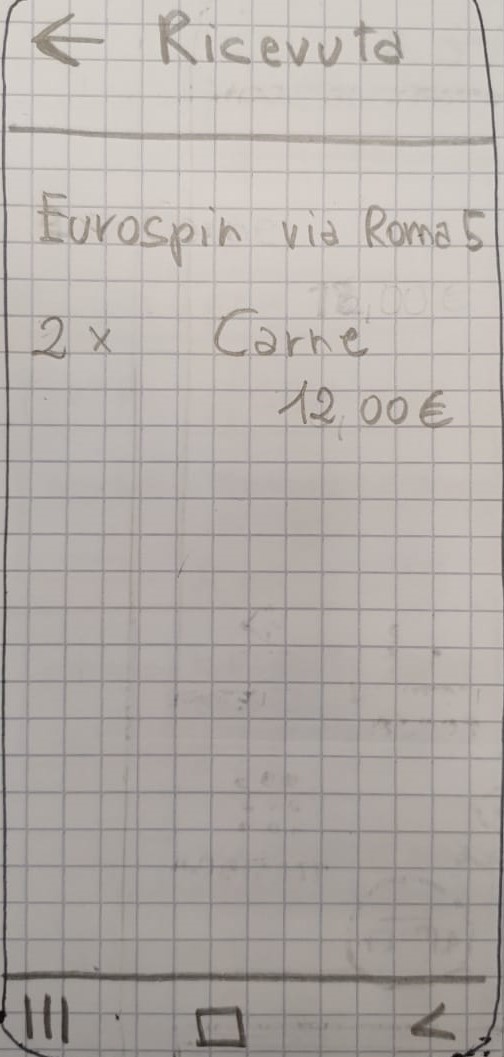 ← Ricevuta
Eurospin via Roma 5
2 x Carne
12,00€